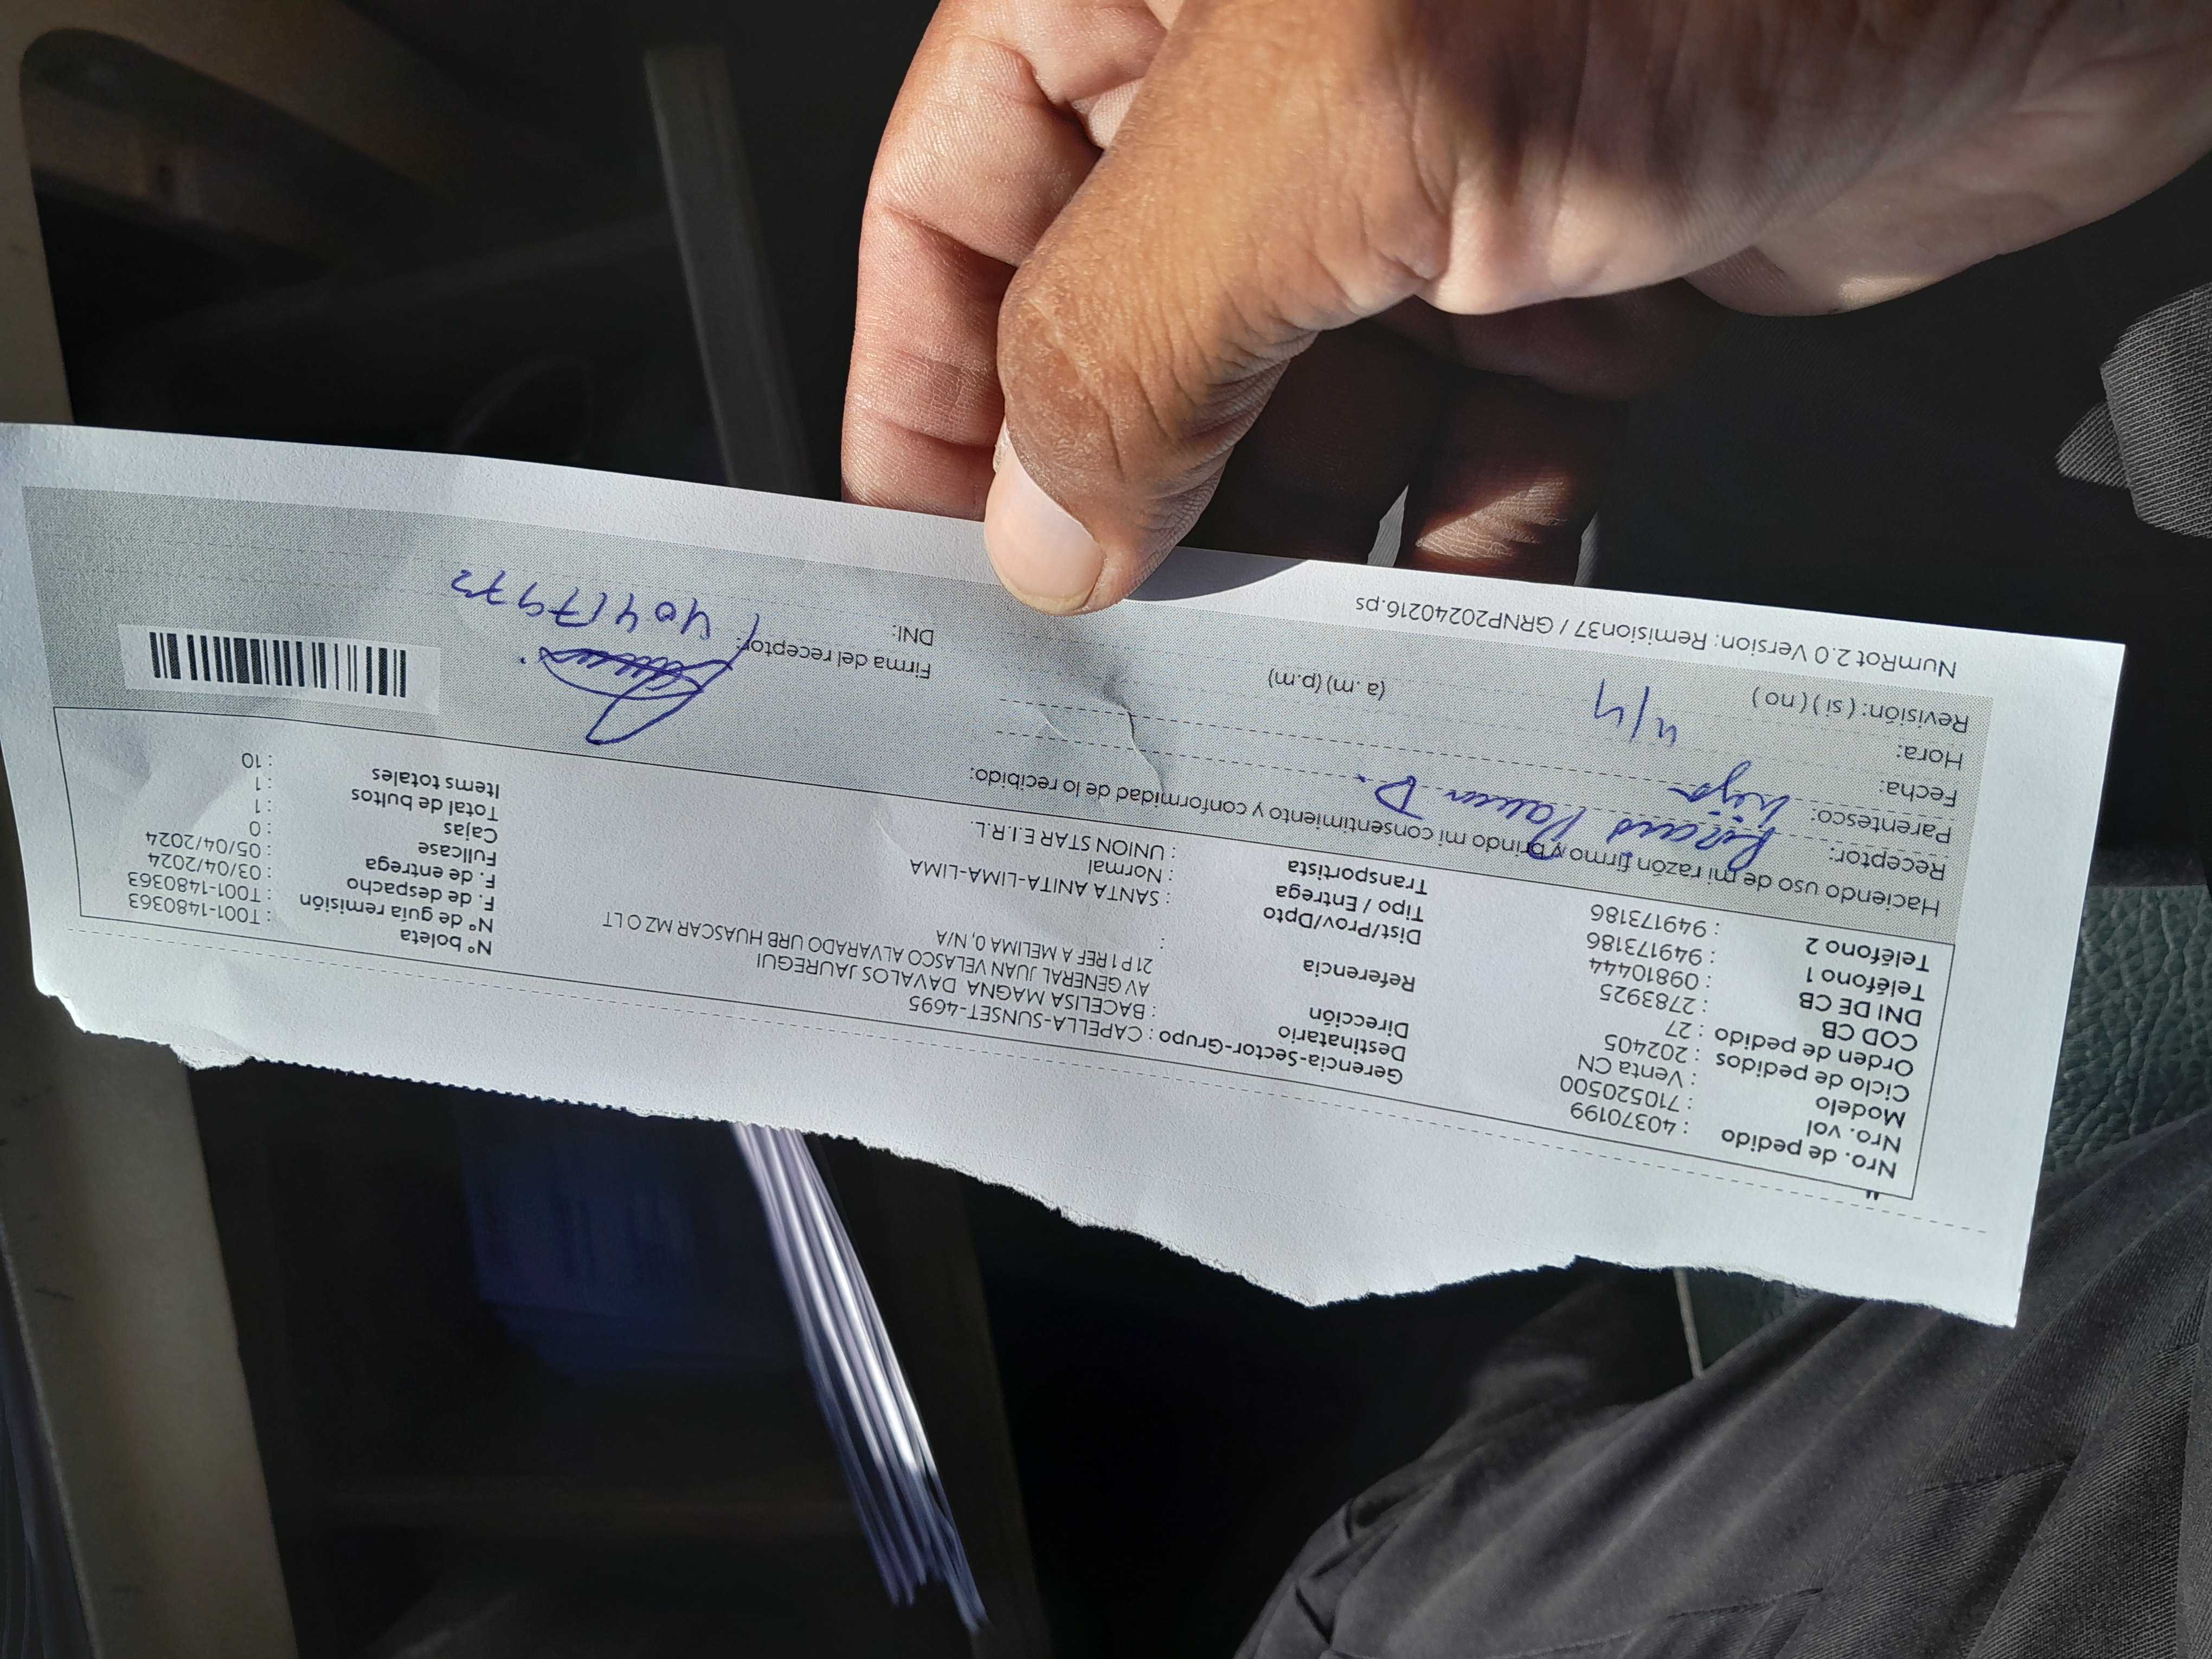 Nro. de pedido : 40370199
Nro. vol : 710520500
Modelo : Venta CN
Ciclo de pedidos : 202405
Orden de pedido : 27
COD CB : 2783925
DNI DE CB : 09810444
Teléfono 1 : 949173186
Teléfono 2 : 949173186
Gerencia-Sector-Grupo : CAPELLA-SUNSET-4695
Destinatario : BACELISA MAGNA DAVALOS JAUREGUI
Dirección AV GENERAL JUAN VELASCO ALVARADO URB HUASCAR MZ O LT
21 P 1 REF A MELIMA 0, N/A
Referencia :
Dist/Prov/Dpto : SANTA ANITA-LIMA-LIMA
Tipo / Entrega : Normal
Transportista : UNION STAR E.I.R.L.
N° boleta : T001-1480363
N° de guía remisión : T001-1480363
F. de despacho : 03/04/2024
F. de entrega : 05/04/2024
Fullcase : 0
Cajas : 1
Total de bultos : 1
Items totales : 10
Haciendo uso de mi razón firmo y brindo mi consentimiento y conformidad de lo recibido:
Receptor: D.
Parentesco: hija
Fecha: 4/4
Hora: (a.m) (p.m)
Revisión: ( si ) ( no )
Firma del receptor:
DNI: 40417972
NumRot 2.0 Version: Remision37 / GRNP20240216.ps